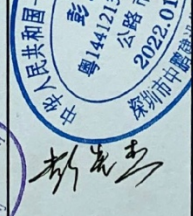 中华人民共和国一
彭
粤1441213
公路市
2022.01
深圳市中鹏建设
彭先杰